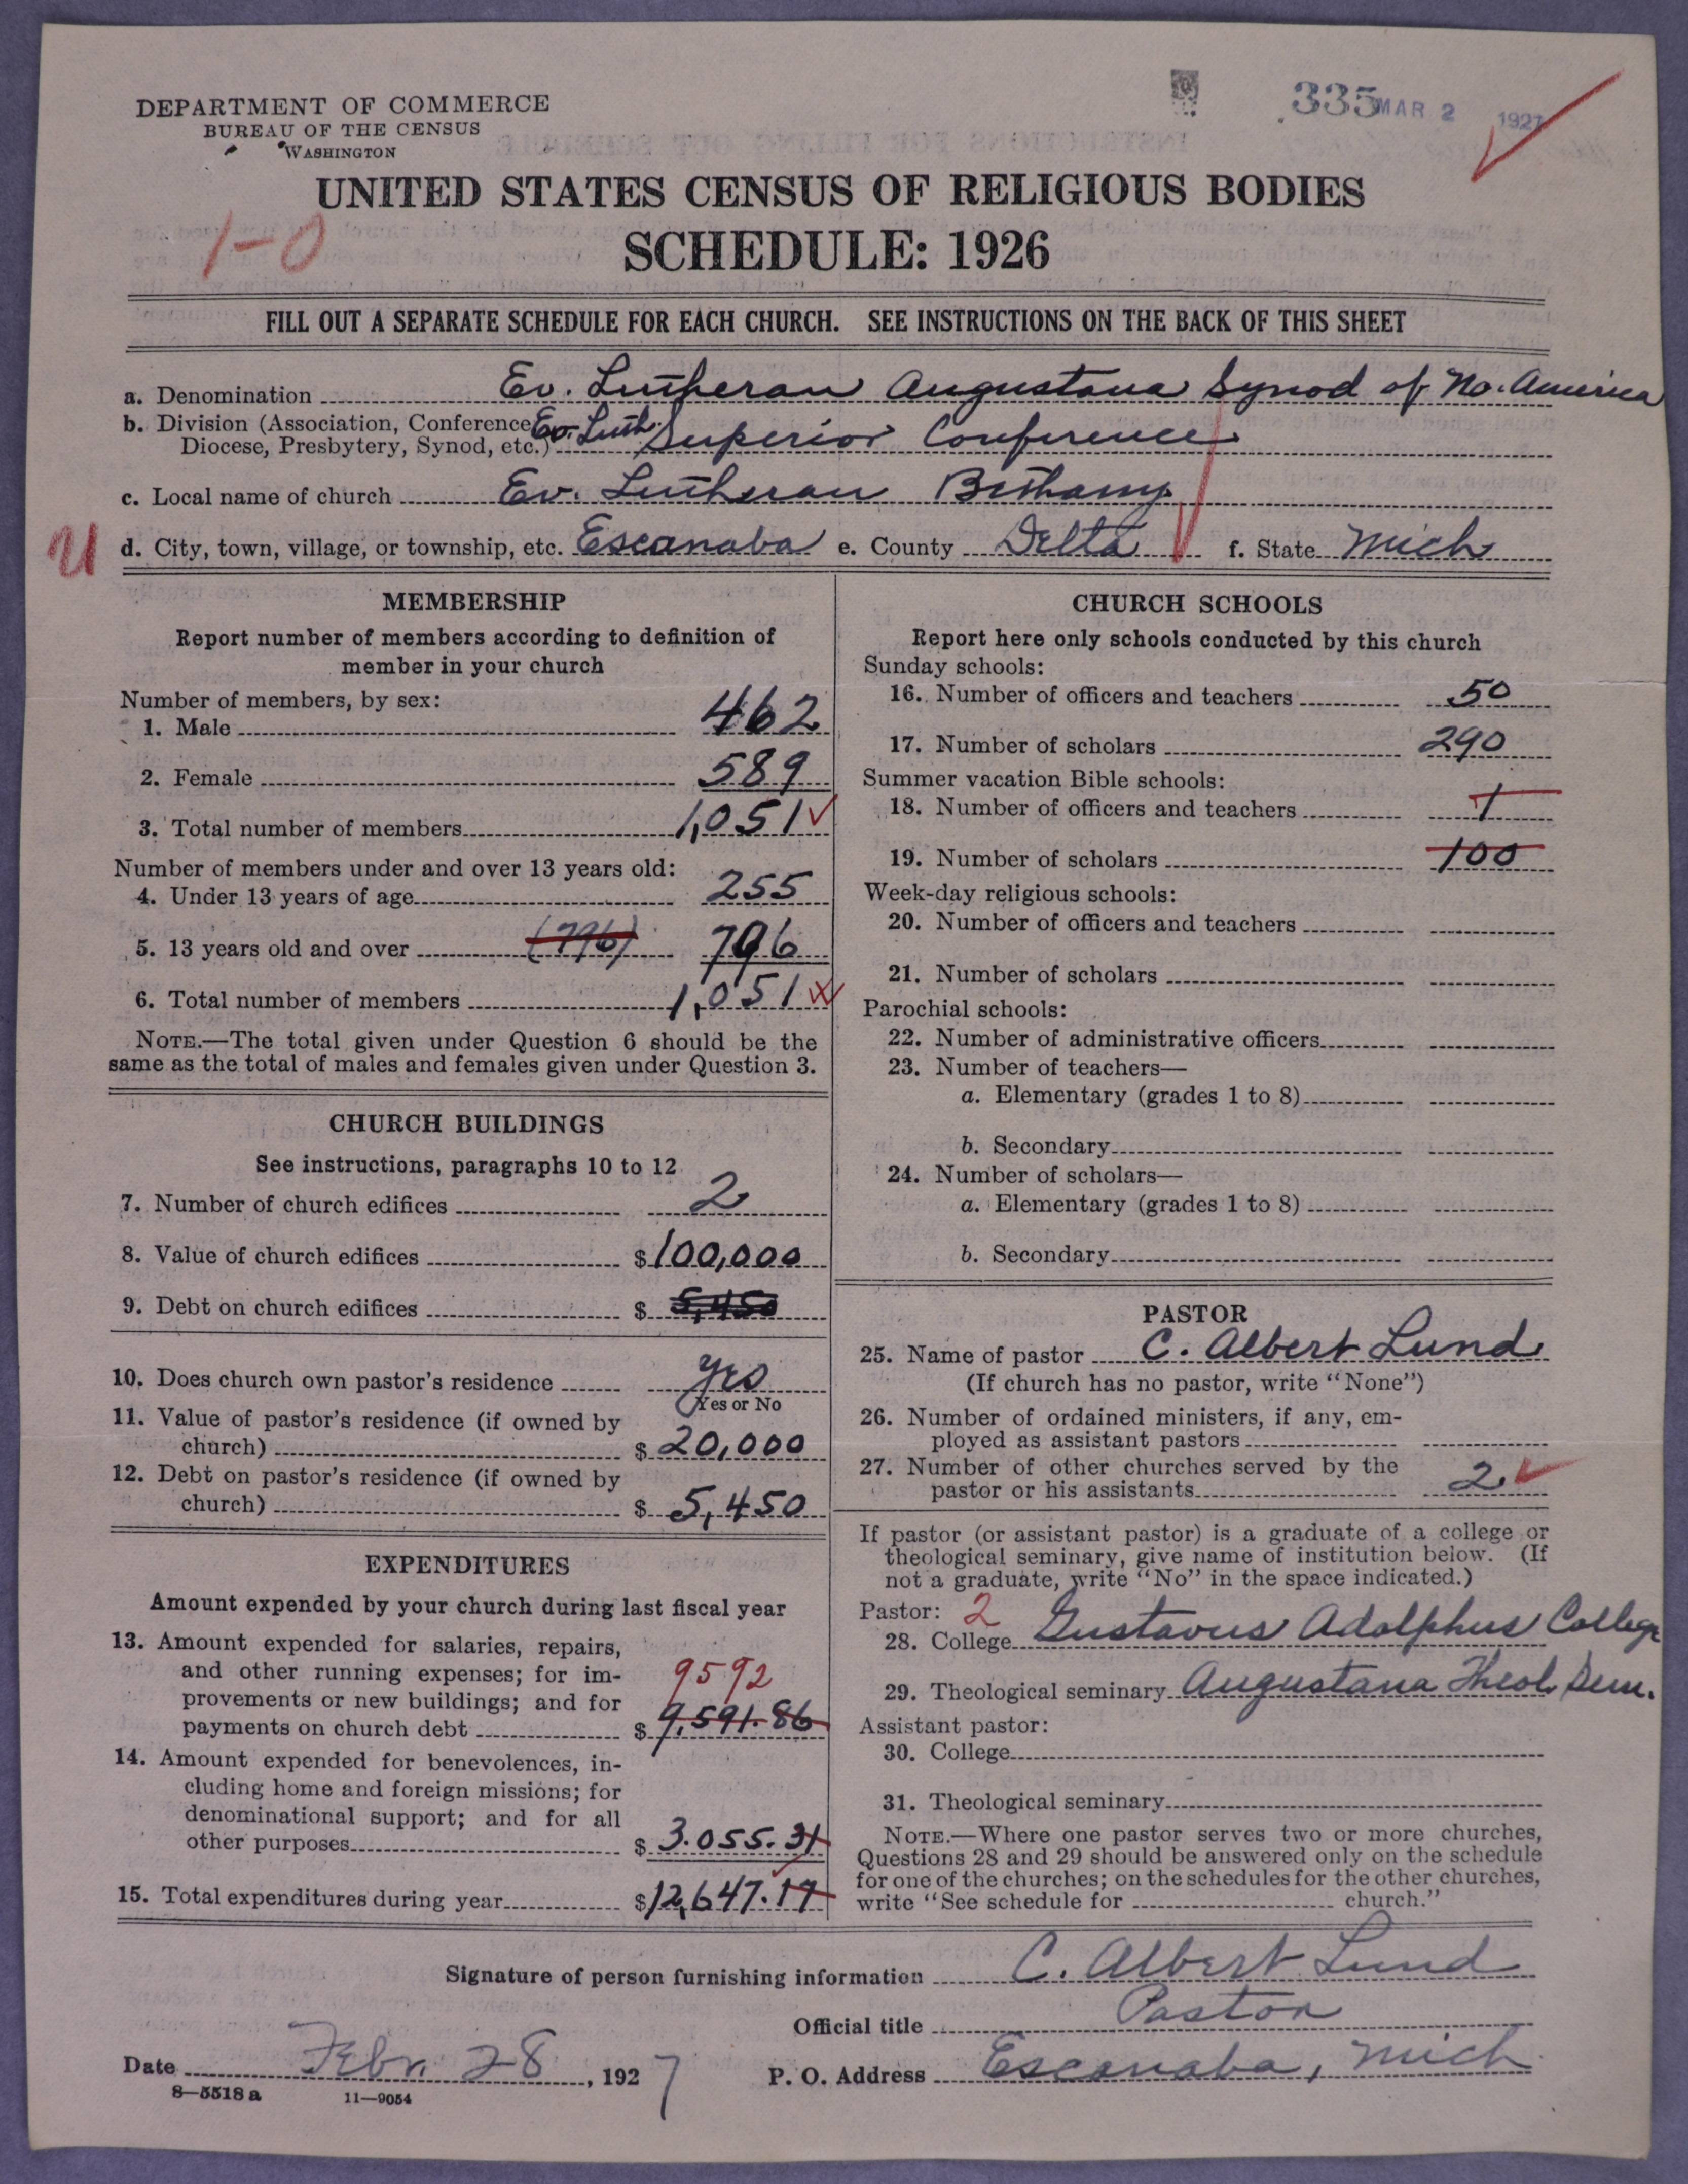 335 MAR 2 1927
DEPARTMENT OF COMMERCE
BUREAU OF THE CENSUS
WASHINGTON
UNITED STATES CENSUS OF RELIGIOUS BODIES
1-0
SCHEDULE: 1926
FILL OUT A SEPARATE SCHEDULE FOR EACH CHURCH. SEE INSTRUCTIONS ON THE BACK OF THIS SHEET
a. Denomination Ev. Lutheran Augustana Synod of No. America
b. Division (Association, Conference, Ev. Luth. Superior Conference
Diocese, Presbytery, Synod, etc.)
c. Local name of church Ev. Lutheran Bethany
d. City, town, village, or township, etc. Escanaba e. County Delta f. State Mich
MEMBERSHIP
Report number of members according to definition of
member in your church
Number of members, by sex:
1. Male 462
2. Female 589
3. Total number of members 1,051
Number of members under and over 13 years old:
4. Under 13 years of age 255
5. 13 years old and over (796) 796
6. Total number of members 1,051
NOTE.—The total given under Question 6 should be the
same as the total of males and females given under Question 3.
CHURCH BUILDINGS
See instructions, paragraphs 10 to 12
7. Number of church edifices 2
8. Value of church edifices $100,000
9. Debt on church edifices $5,450
10. Does church own pastor's residence yes
Yes or No
11. Value of pastor's residence (if owned by
church) $20,000
12. Debt on pastor's residence (if owned by
church) $5,450
EXPENDITURES
Amount expended by your church during last fiscal year
13. Amount expended for salaries, repairs,
and other running expenses; for im- 9592
provements or new buildings; and for
payments on church debt $9,591.86
14. Amount expended for benevolences, in-
cluding home and foreign missions; for
denominational support; and for all
other purposes $3.055.31
15. Total expenditures during year $12,647.17
CHURCH SCHOOLS
Report here only schools conducted by this church
Sunday schools:
16. Number of officers and teachers 50
17. Number of scholars 290
Summer vacation Bible schools:
18. Number of officers and teachers 1
19. Number of scholars 100
Week-day religious schools:
20. Number of officers and teachers
21. Number of scholars
Parochial schools:
22. Number of administrative officers
23. Number of teachers—
a. Elementary (grades 1 to 8)
b. Secondary
24. Number of scholars—
a. Elementary (grades 1 to 8)
b. Secondary
PASTOR
25. Name of pastor C. Albert Lund
(If church has no pastor, write "None")
26. Number of ordained ministers, if any, em-
ployed as assistant pastors
27. Number of other churches served by the
pastor or his assistants 2
If pastor (or assistant pastor) is a graduate of a college or
theological seminary, give name of institution below. (If
not a graduate, write "No" in the space indicated.)
Pastor: 2
28. College Gustavus Adolphus College
29. Theological seminary Augustana Theol. Sem.
Assistant pastor:
30. College
31. Theological seminary
NOTE.—Where one pastor serves two or more churches,
Questions 28 and 29 should be answered only on the schedule
for one of the churches; on the schedules for the other churches,
write "See schedule for church."
Signature of person furnishing information C. Albert Lund
Official title Pastor
Date Febr. 28, 1927 P. O. Address Escanaba, Mich
8—5518a 11—9054